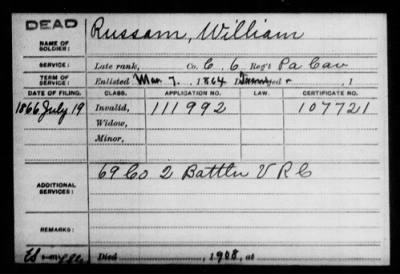 DEAD
NAME OF SOLDIER: Russam, William
SERVICE: Late rank, Co. C. 6 Reg't Pa Cav
TERM OF SERVICE: Enlisted Mar 7. 1864 , 1
DATE OF FILING. CLASS. APPLICATION NO. LAW. CERTIFICATE NO.
1866 July 19 Invalid, 111992 107721
Widow,
Minor,
ADDITIONAL SERVICES: 69 Co 2 Battln V R C
REMARKS:
Died , 1908, at